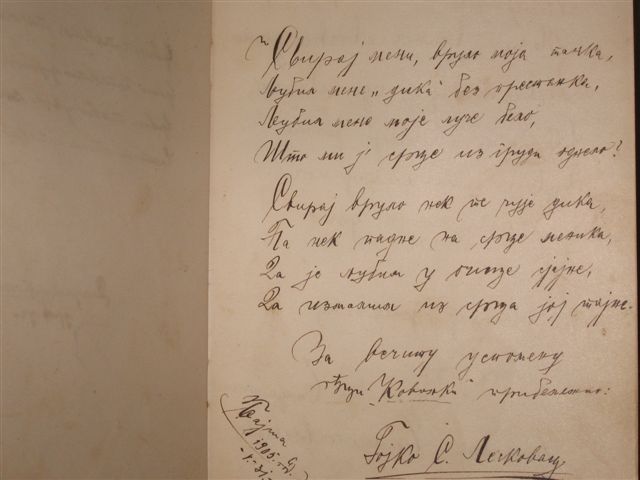 „Свирај мени, вруло моја танка,
Љубим мене „дика" без престанка,
Љубим мене моје луче бело,
Што ми ј' срце из груди однело?
Свирај вруло нек те чује дика,
Па нек падне на срце меника,
Да је љубим у очице сјајне,
Да измамим из срца јој тајне.
За вечиту успомену
"Ковиљки" прибележио:
Гојко С. Лесковац
1905. год.